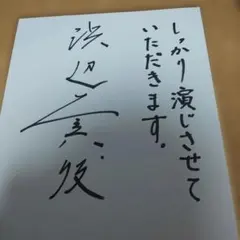 しっかり演じさせて
いただきます。
浜辺美波